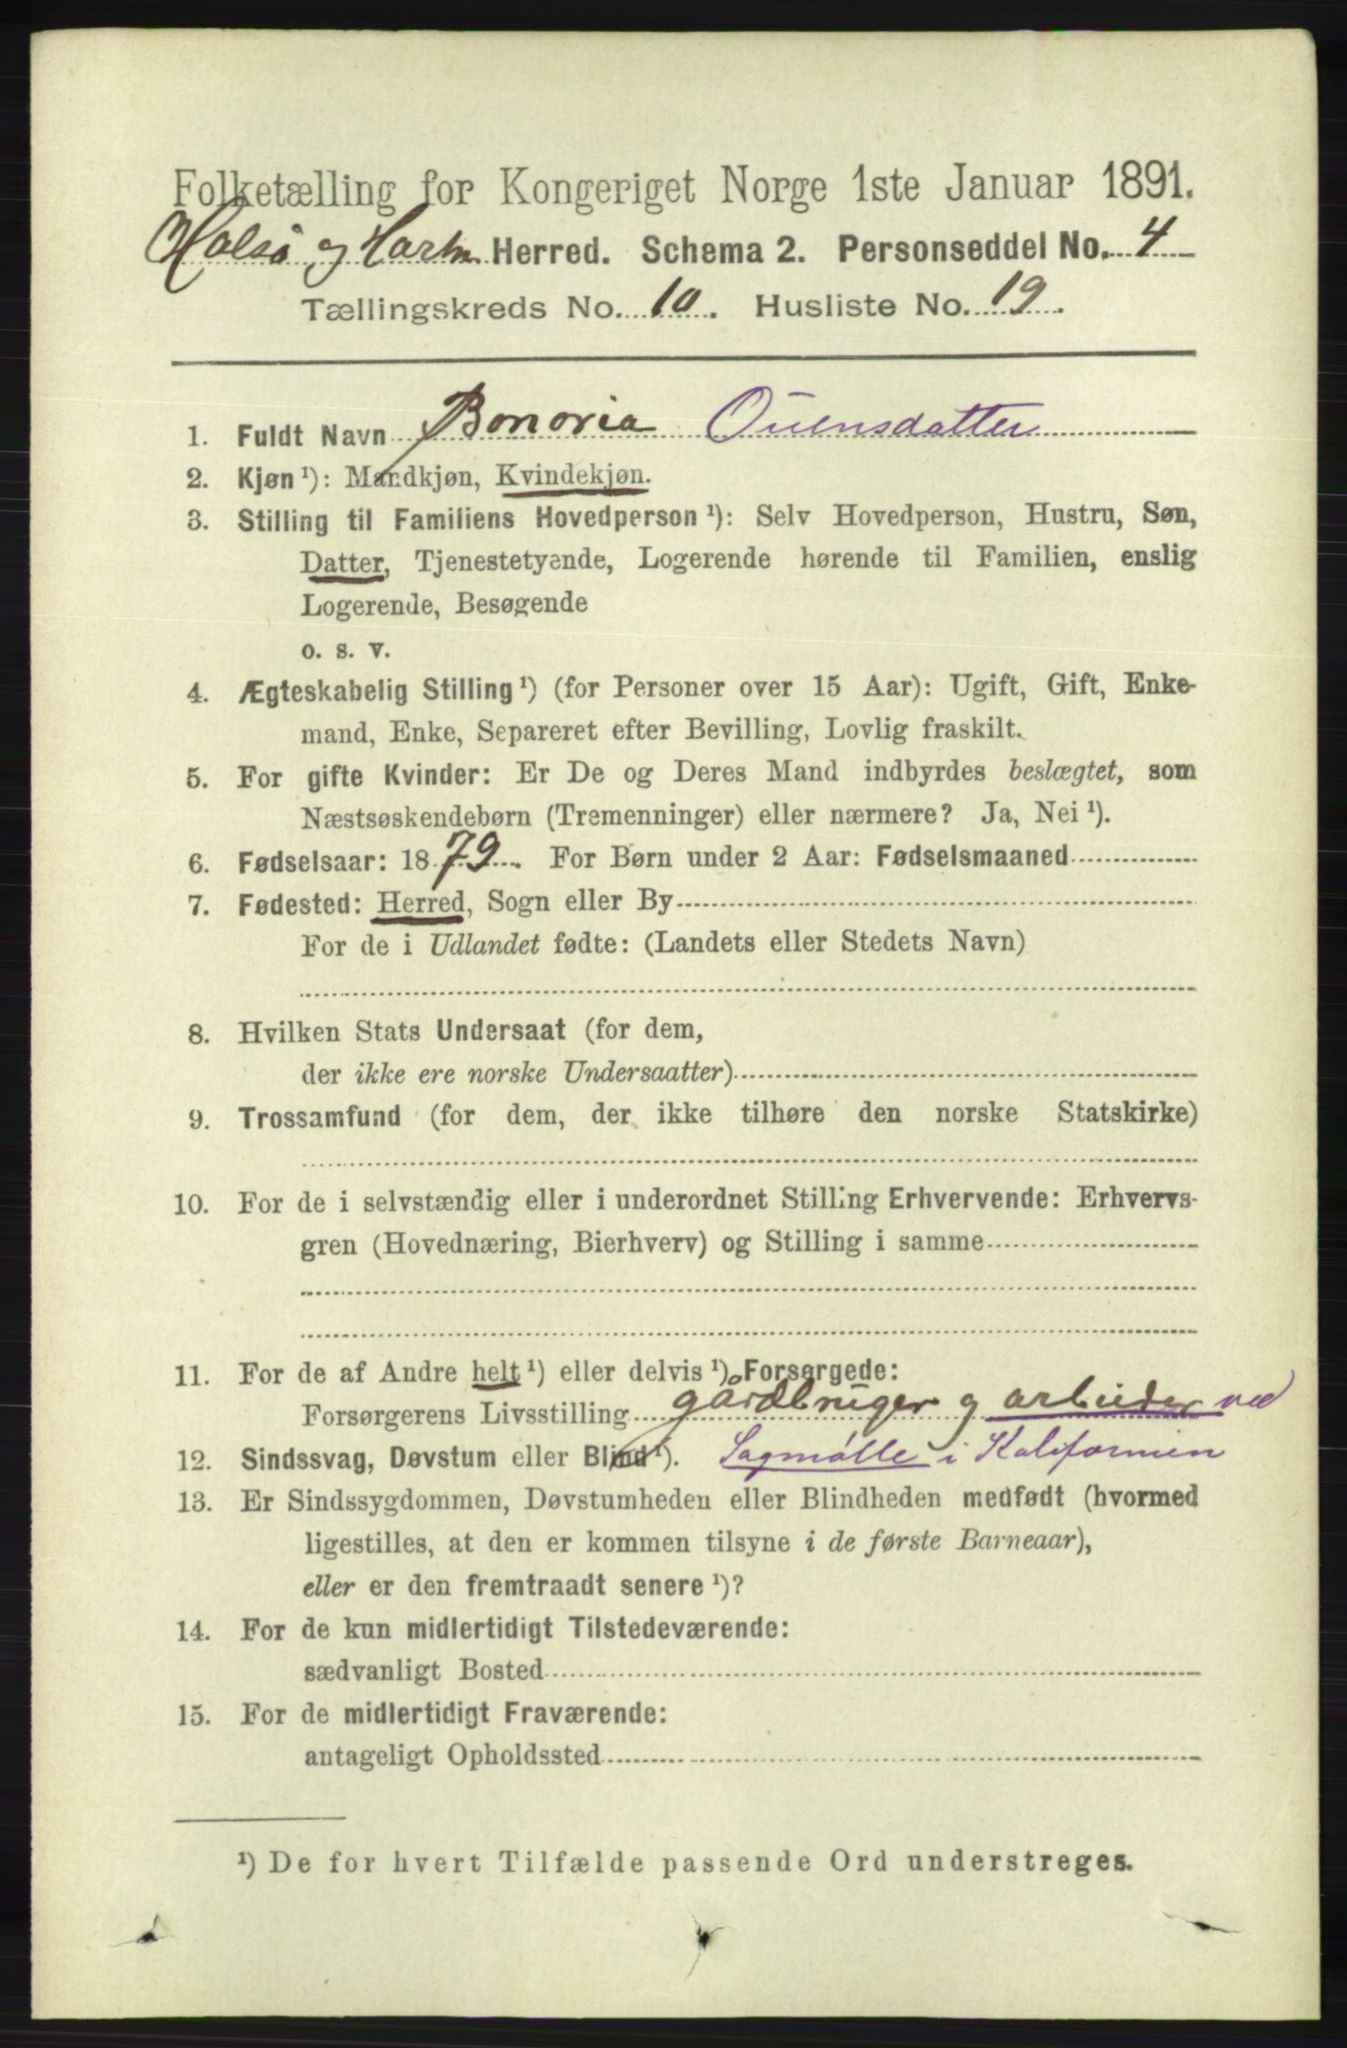 Folketælling for Kongeriget Norge 1ste Januar 1891.
Halså og Harkm Herred. Schema 2. Personseddel No. 4
Tællingskreds No. 10. Husliste No. 19.
1. Fuldt Navn Bonoria Ouensdatter
2. Kjøn ¹): Mandkjøn, Kvindekjøn.
3. Stilling til Familiens Hovedperson ¹): Selv Hovedperson, Hustru, Søn,
Datter, Tjenestetyende, Logerende hørende til Familien, enslig
Logerende, Besøgende
o. s. v.
4. Ægteskabelig Stilling ¹) (for Personer over 15 Aar): Ugift, Gift, Enke-
mand, Enke, Separeret efter Bevilling, Lovlig fraskilt.
5. For gifte Kvinder: Er De og Deres Mand indbyrdes beslægtet, som
Næstsøskendebørn (Tremenninger) eller nærmere? Ja, Nei ¹).
6. Fødselsaar: 1879. For Børn under 2 Aar: Fødselsmaaned
7. Fødested: Herred, Sogn eller By
For de i Udlandet fødte: (Landets eller Stedets Navn)
8. Hvilken Stats Undersaat (for dem,
der ikke ere norske Undersaatter)
9. Trossamfund (for dem, der ikke tilhøre den norske Statskirke)
10. For de i selvstændig eller i underordnet Stilling Erhvervende: Erhvervs-
gren (Hovednæring, Bierhverv) og Stilling i samme
11. For de af Andre helt ¹) eller delvis ¹) Forsørgede:
Forsørgerens Livsstilling gårdbruger og arbeider ved
12. Sindssvag, Døvstum eller Blind ¹). Sagmølle i Kalifornien
13. Er Sindssygdommen, Døvstumheden eller Blindheden medfødt (hvormed
ligestilles, at den er kommen tilsyne i de første Barneaar),
eller er den fremtraadt senere ¹)?
14. For de kun midlertidigt Tilstedeværende:
sædvanligt Bosted
15. For de midlertidigt Fraværende:
antageligt Opholdssted
¹) De for hvert Tilfælde passende Ord understreges.